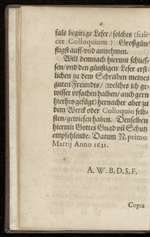 fals begirige Leser / solches
Colloquium : Großgün/
stigst auff: vnd annehmen.
Will demnach hiermit schlies/
sen / vnd den günstigen Leser erst/
lichen zu dem Schreiben meines
guten Freundes / welches ich ge/
wisser vrsachen halben / auch gern
hierbey gefügt / hernacher aber zu
dem Werck oder Colloquio selb/
sten / gewiesen haben. Denselben
hiermit Gottes Gnad vñ Schutz
empfehlende. Datum N. primo
Martij Anno 1621.
A. W. B. D. S. F.
Copia